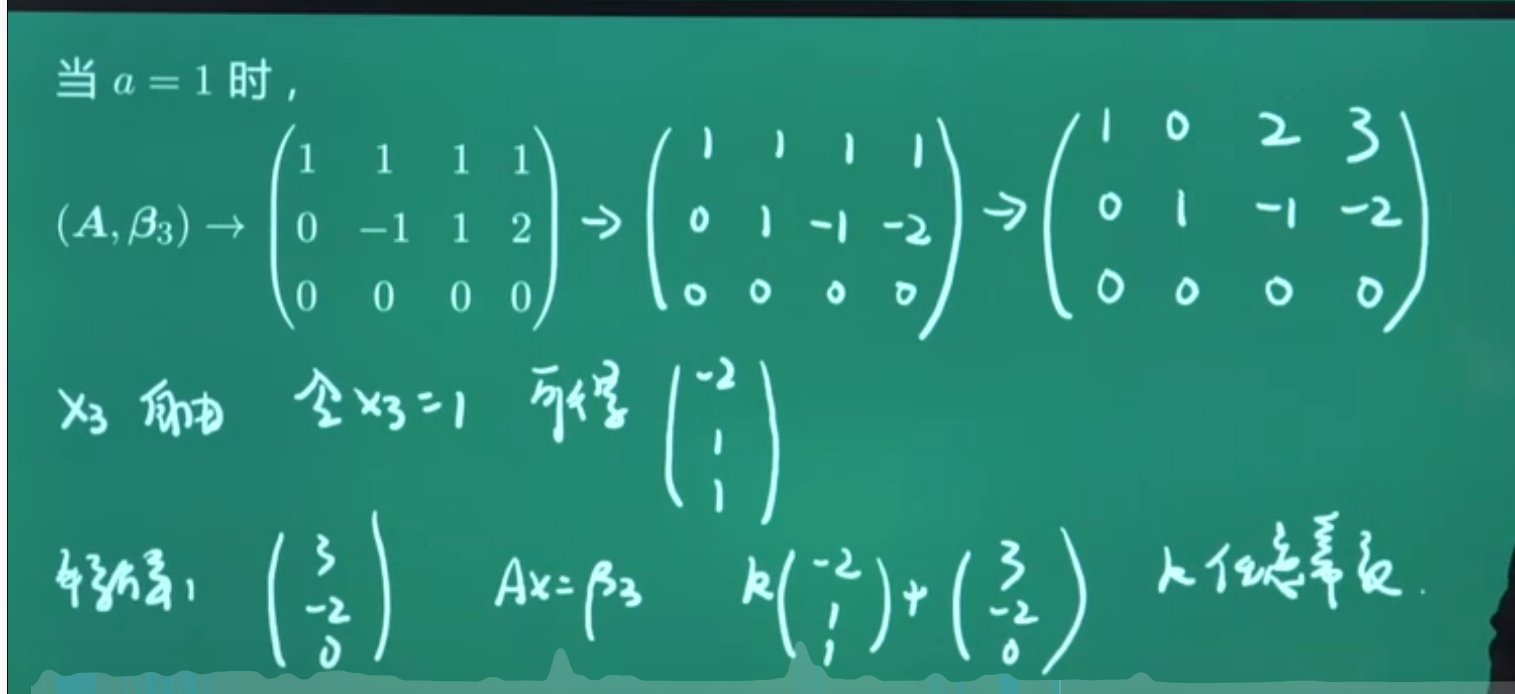 当 a = 1 时，
(A, β₃) → \begin{pmatrix} 1 & 1 & 1 & 1 \\ 0 & -1 & 1 & 2 \\ 0 & 0 & 0 & 0 \end{pmatrix} → \begin{pmatrix} 1 & 1 & 1 & 1 \\ 0 & 1 & -1 & -2 \\ 0 & 0 & 0 & 0 \end{pmatrix} → \begin{pmatrix} 1 & 0 & 2 & 3 \\ 0 & 1 & -1 & -2 \\ 0 & 0 & 0 & 0 \end{pmatrix}
x₃ 自由 令 x₃=1 可得 \begin{pmatrix} -2 \\ 1 \\ 1 \end{pmatrix}
\begin{pmatrix} 3 \\ -2 \\ 0 \end{pmatrix} Ax=β₃ k\begin{pmatrix} -2 \\ 1 \\ 1 \end{pmatrix} + \begin{pmatrix} 3 \\ -2 \\ 0 \end{pmatrix} k 任意常数.